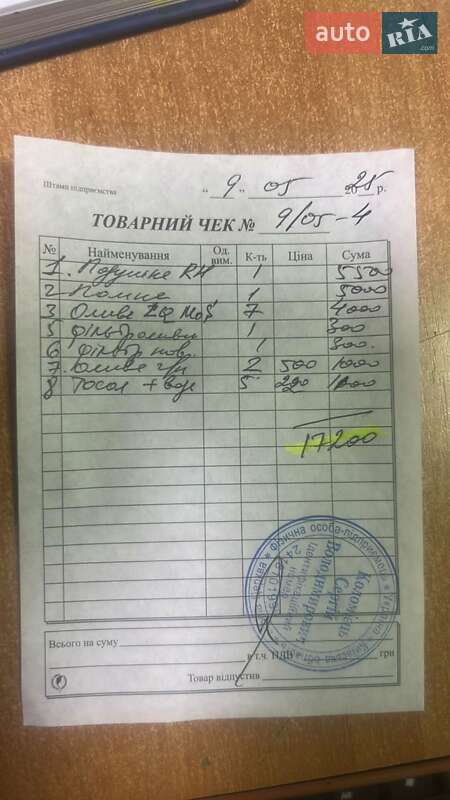 auto RIA .com
Штамп підприємства
„ 9 „ 05 2025 р.
ТОВАРНИЙ ЧЕК № 9/05-4
№ Найменування Од. вим. К-ть Ціна Сума
1. Подушка RH 1 5500
2 Помпа 1 5000
3 Олива LQ MoS 7 4000
5 Фільтр оливи 1 300
6 Фільтр пов. 1 300.
7. Олива г/п 2 500 1000
8 Тосол + вода 5 220 1100
17200
Фізична особа-підприємець
Коломієць
Сергій
Володимирович
Всього на суму
в т.ч. ПДВ грн
Товар відпустив